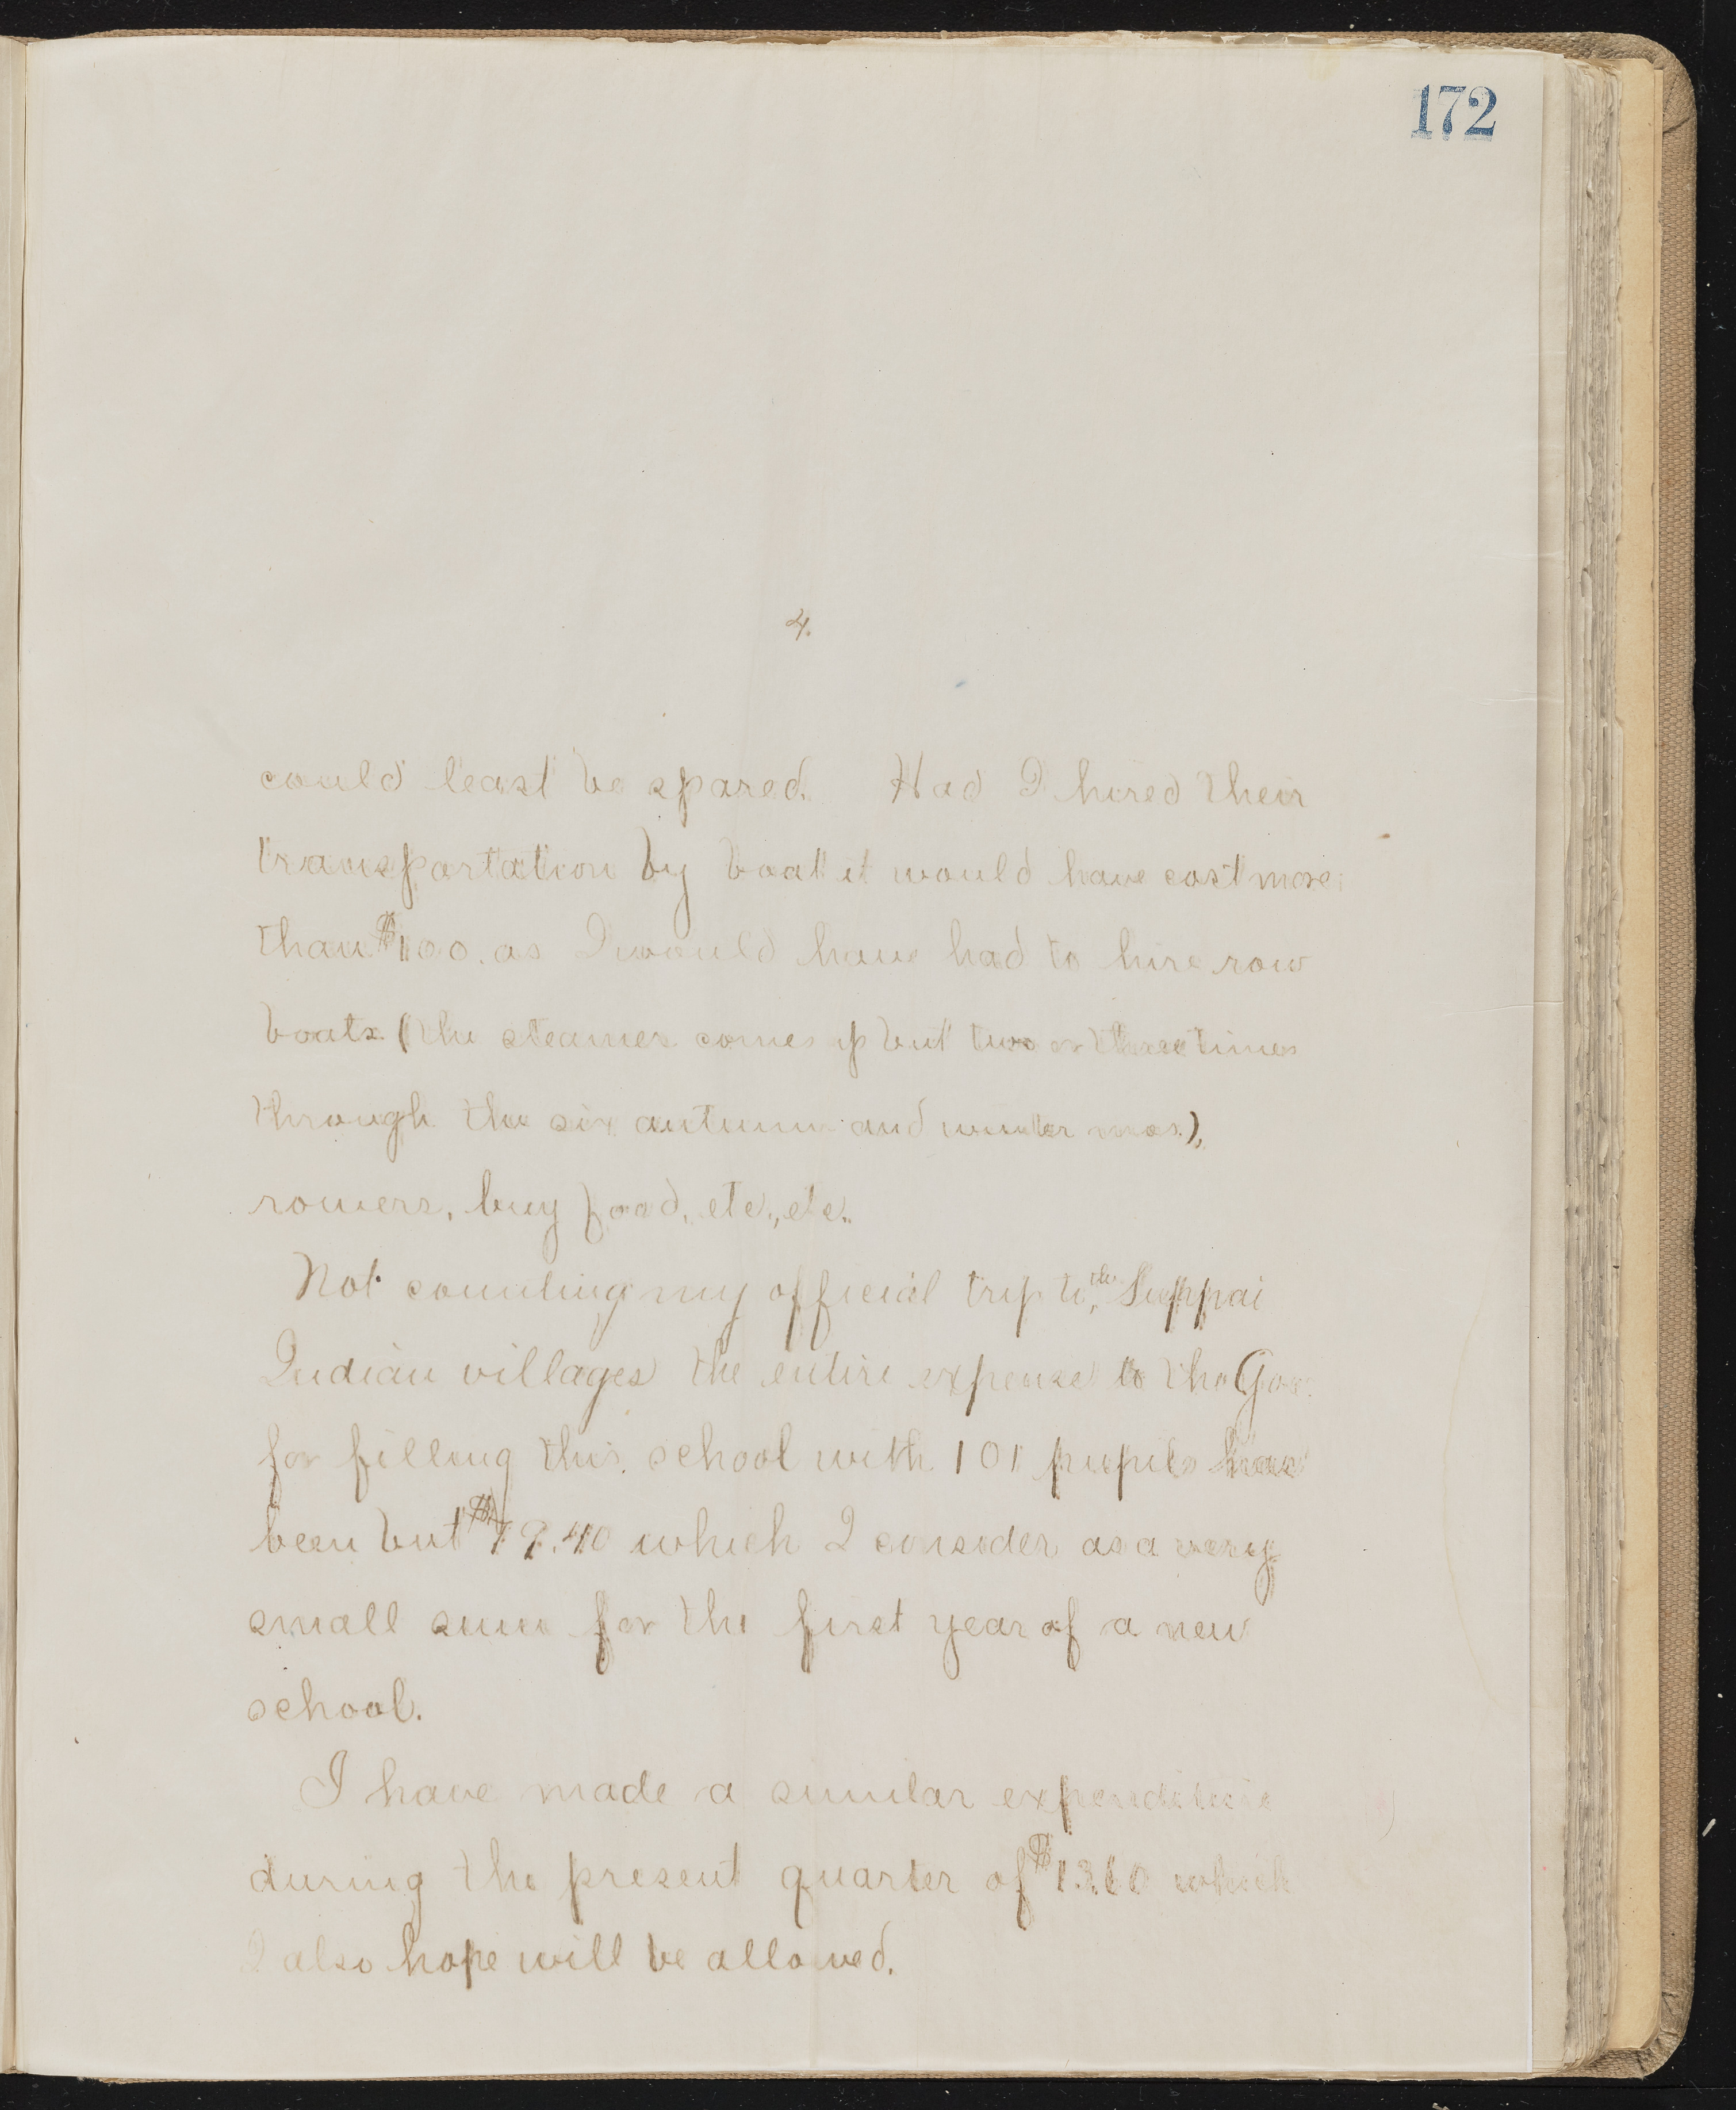 172
4.
could least be spared. Had I hired their
transportation by boat it would have cost more
than $100. as I would have had to hire row
boats (the steamer comes up but two or three times
through the six autumn and winter mos.),
rowers, buy food, etc., etc.
Not counting my official trip to the Suppai
Indian villages the entire expense to the Gov.
for filling this school with 101 pupils has
been but which I consider as a very
small sum for the first year of a new
school.
I have made a similar expenditure
during the present quarter of which
I also hope will be allowed.